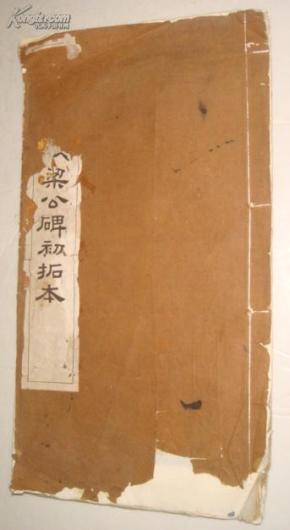 Kongfz.com
梁公碑初拓本